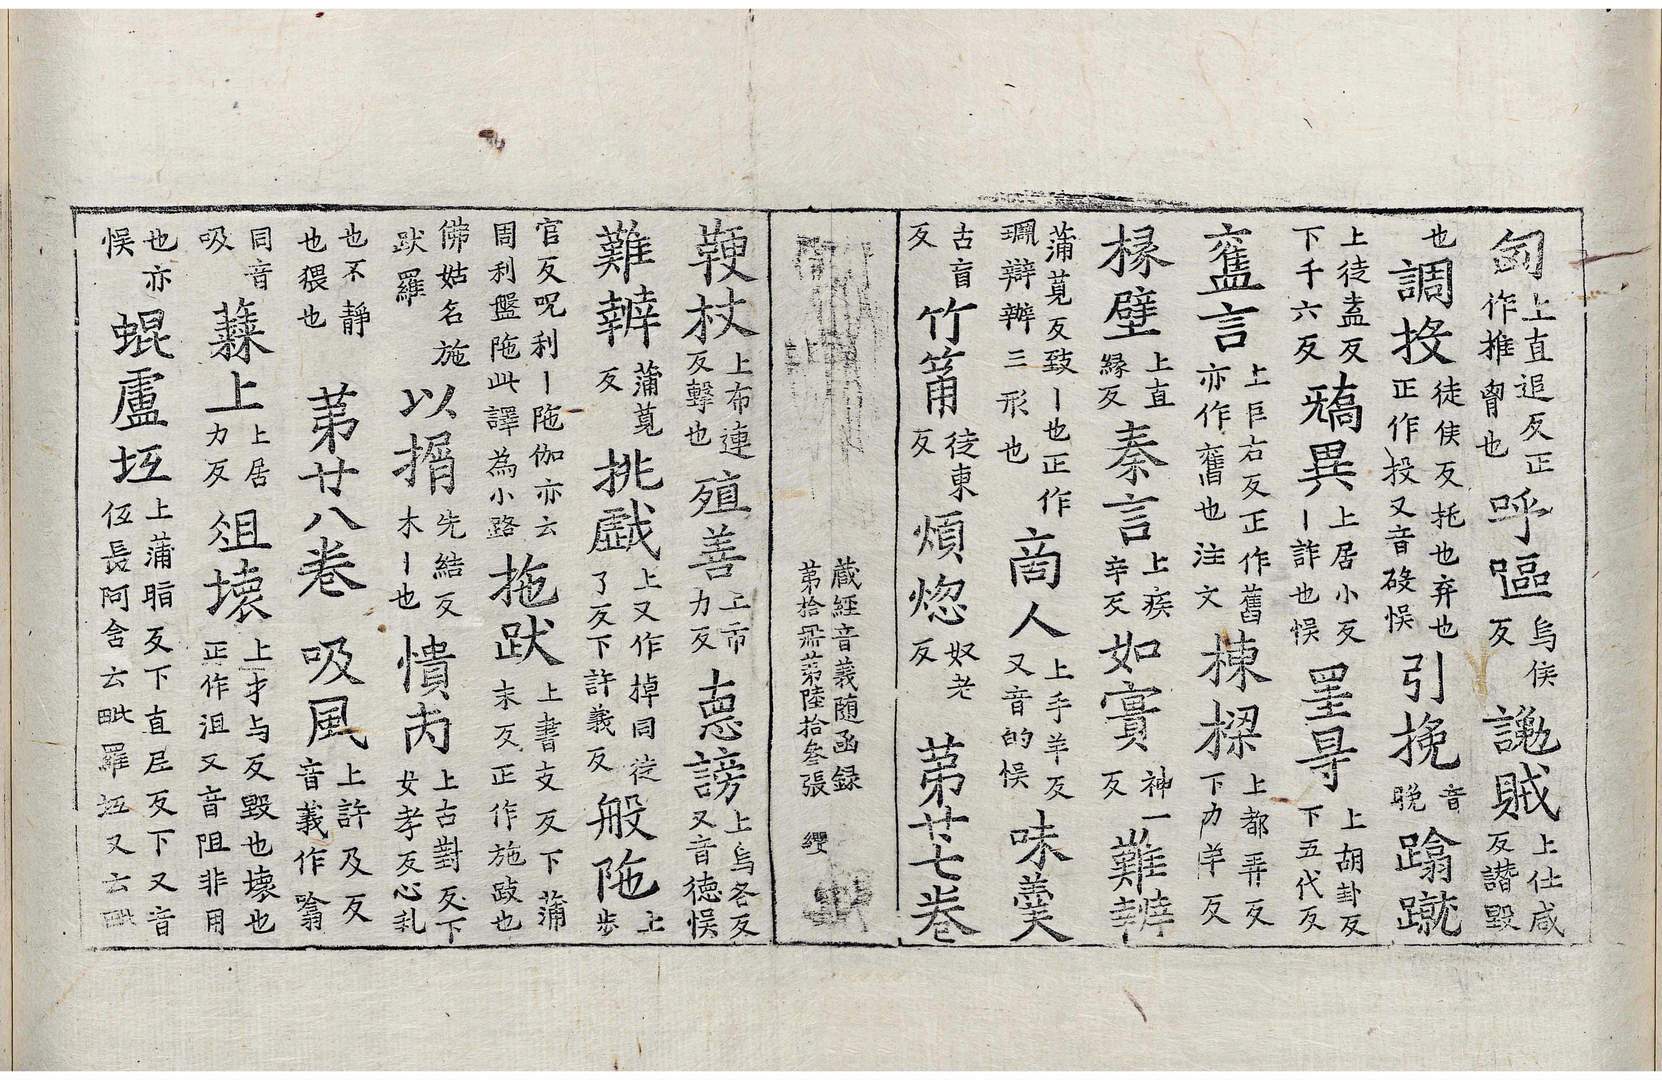 匈上直追反正作推𦚾也呼嘔烏侯反讒賊上仕咸反譖毀
也調投徒侯反托也弃也正作投又音砓悞引挽音晚蹹蹴
上徒盍反下千六反矯異上居小反丨詐也悞罣㝵上胡卦反下五代反
舊言上巨右反正作舊亦作舊也注文棟樑上都弄反下力羊反
椽壁上直緣反秦言上疾辛反如實神一反難辯
蒲莧反致丨也正作㺹辯辦三形也商人上手羊反又音的悞味羹
古盲反竹筩徒東反煩惚奴老反苐廿七卷
藏經音義随函録
苐拾册苐陸拾叄張 纓
鞕杖上布連反擊也殖善上市力反惪謗上烏各反又音德悞
難辯蒲莧反挑戲上又作掉同徒了反下許義反般陁上步
官反呪利丨陁伽亦云周利盤陁此譯為小路拖跋上書支反下蒲末反正作施䟦也
佛姑名施跋羅以揟先結反木丨也憒丙上古對反下女孝反心乱
也不静也猥也苐廿八卷吸風上許及反音義作噏
同音吸蘂上上居力反俎壞上才与反毀也壞也正作沮又音阻非用
也亦悞蜫盧坻上蒲脂反下直尼反下又音伍長阿含云毗羅坻又云毗